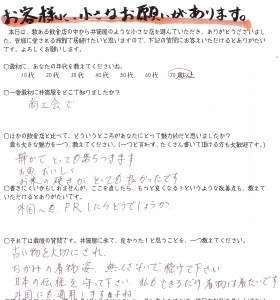 お客様に、小さなお願いがあります。
本日は、数ある飲食店の中から井筒屋のような小さな店を選んでいただき、ありがとうございました。
皆様に愛される旅館で居続けたいと思いますので、下記の質問にお答えいただけるとありがたいです。よろしくお願いします。
○最初に、あなたの年代を教えてくださいね。
10代 20代 30代 40代 50代 60代 70歳以上
○一番最初に井筒屋をどこで知りましたか?
商工会で
○ほかの飲食店と比べて、どういうところがあなたにとって魅力的だと思いましたか?
最も大きな魅力を一つ、教えてください。(一つと言わず、たくさん書いて頂ける方も大歓迎です。)
静かで とっても落ちつきます
お肉 おいしく
お米の硬さが とっても良かったです
○書きにくいかもしれませんが、ここを直したら、もっと良くなる!というような改善点も、教えていただけるとありがたいです。
外国へも PRしたらどうでしょうか
○これでは最後の質問です。井筒屋に来て、良かった!と思うことを、一つ教えてください。
古い物を大切にされ、
日本の伝統を守って下さい 私もできるだけ着物は着たいです